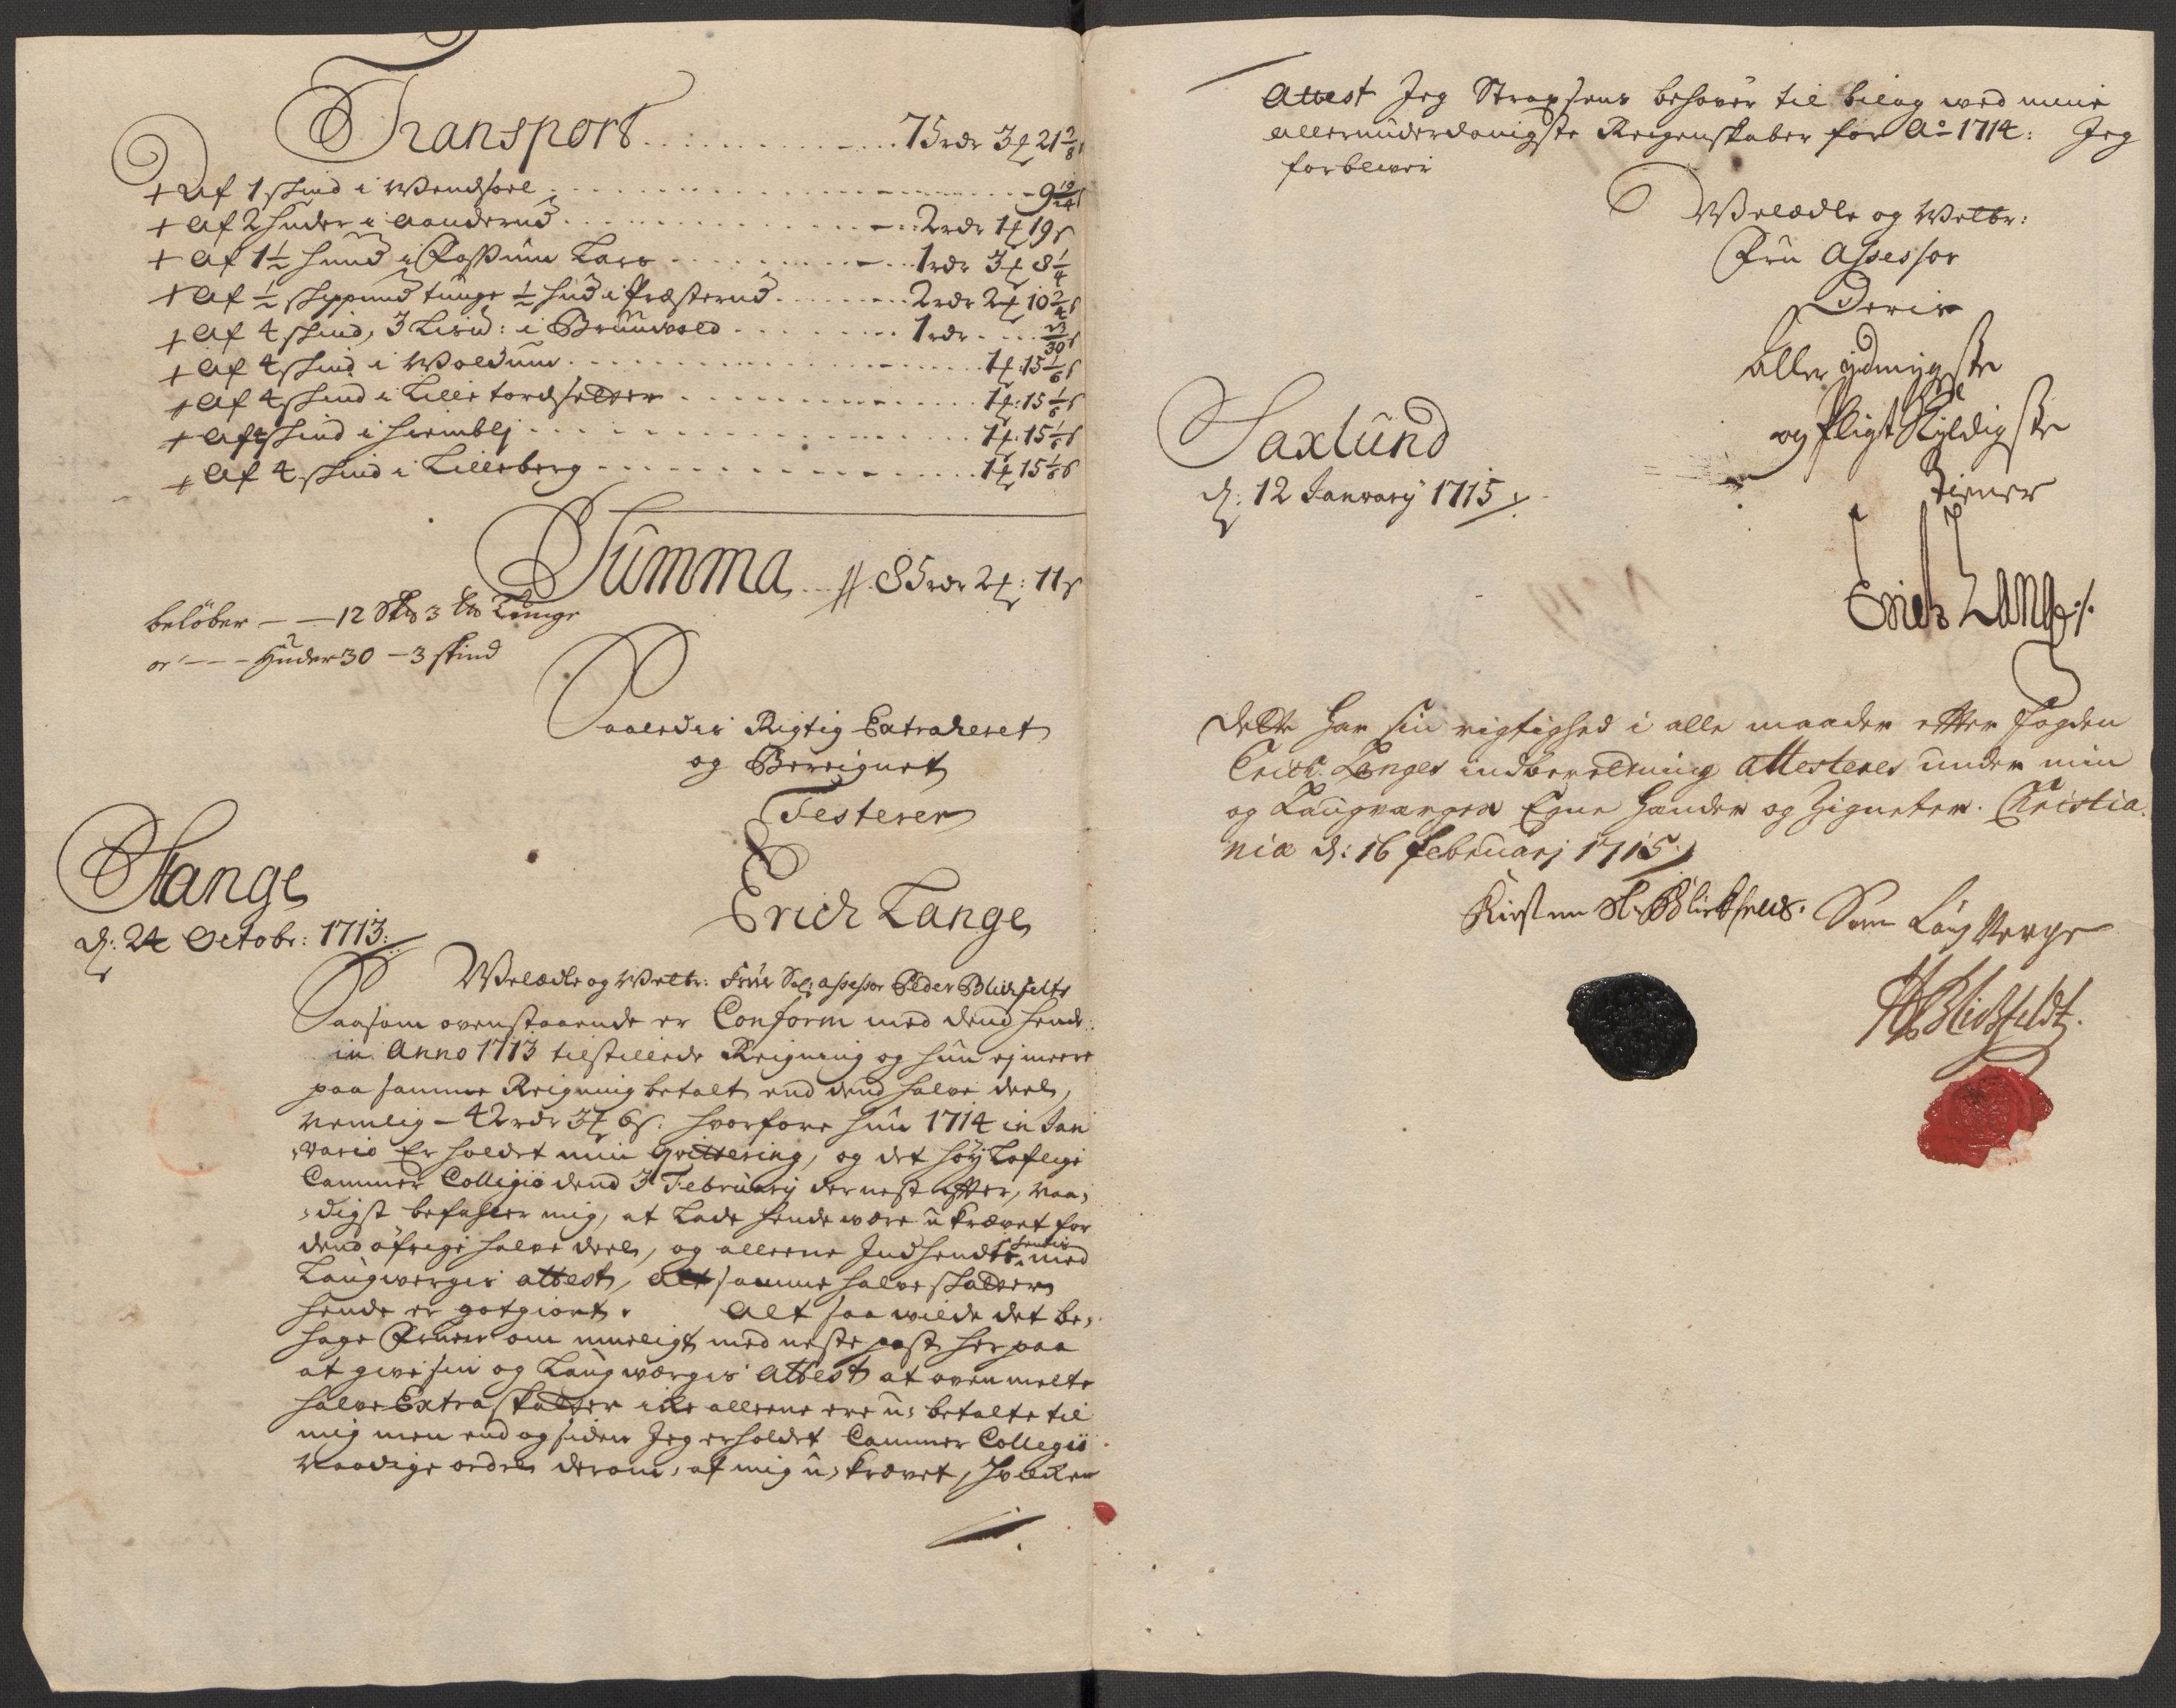 Transport . . . . . 75 rdr 3 ꝉ 21 2/8 s
+ Af 1 skind i Wendsoel . . . . . 9 19/24 s
+ Af 2 huder i Aanderud . . . . . 2 rdr 1 ꝉ 19 s
+ Af 1½ huud i Fossum Lars . . . . . 1 rdr 3 ꝉ 8 1/4
+ Af ½ skippund tunge ½ hud i Præsterud . . . . . 2 rdr 2 ꝉ 10 2/4 s
+ Af 4 skind, 3 Lisp: i Bruuvold . . . . . 1 rdr . . 23/30 s
+ Af 4 skind i Woldum . . . . . 1 ꝉ: 15 1/6 s
+ Af 4 skind i Lille tordsetter . . . . . 1 ꝉ: 15 1/6 s
+ Af 4 skind i hiembli . . . . . 1 ꝉ: 15 1/6 s
+ Af 4 skind i Lilleberg . . . . . 1 ꝉ 15 1/6 s
Summa . . // 85 rdr 2 ꝉ: 11 s
beløber — — 12 Sk 3 Tunge
or — — Huder 30 — 3 skind
Saaledis Rigtig Extraheret
og Bereignet
Testerer
Erich Lange
Stange
d: 24 Octobr: 1713:
Welædle og Welbr: Frue Sal: assessor Peder Blichfelts
Saasom ovenstaaende er Conform med dend hende
in Anno 1713 tilstillede Reigning og hun ej meere
paa samme Reigning betalt end dend halve deel,
nemlig — 42 rdr 3 ꝉ 6 s. hvorfore hun 1714 in Jan
vario Er holdet min Qvittering, og det høy Loflige
Cammer Collegio dend 3 February dernest efter, naa,
,digst befaller mig, at Lade hende være u krævet for
dend øfrige halve deel, og alleene Indsende hendis med
Laugverges attest, at samme halve skatter
hende er gotgiort. Alt saa wilde det be,
hage Fruen om mueligt med neste post her paa
at give sin og Laugværges Attest at ovenmelte
halve Extraskatter ike alleene ere u, betalte til
mig men end og siden Jeg erholdet Cammer Collegii
Naadige ordre derom, af mig u, krævet, hvilken
Attest Jeg Straxsens behøver til bilag wed mine
allerunderdanigste Reigenskaber for Ao 1714: Jeg
forblever
Welædle og Welbr:
Fru Assessor
Deris
Aller ydmygste
og Pligt Skyldigste
Tiener
Erich Lange
Saxlund
d: 12 January 1715
Dette har sin rigtighed i alle maader efter Fogden
Erich Langes indberetning Attesteres under min
og Laugvarges Egne hænder og Zigneter. Christia
nia d: 16 Februarj 1715
Kirsten Sl. Blichfelds. Som Laug Verge
HBlichfeldt.